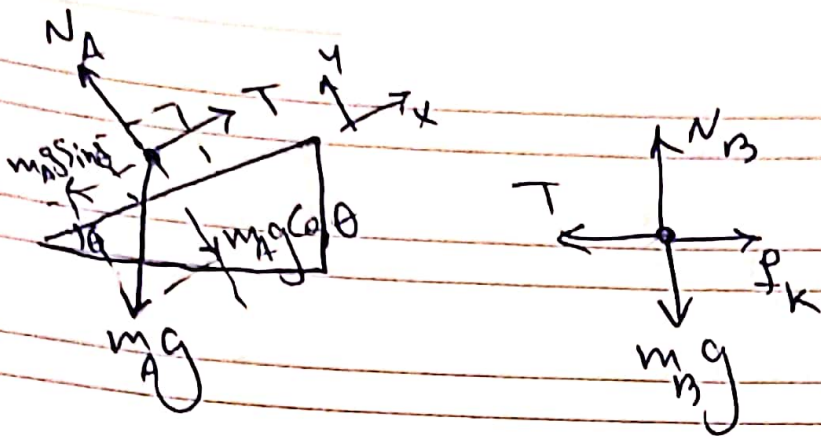 N_A
T
y
x
m_A g sinθ
θ
m_A g Cosθ
m_A g
N_B
T
f_K
m_B g